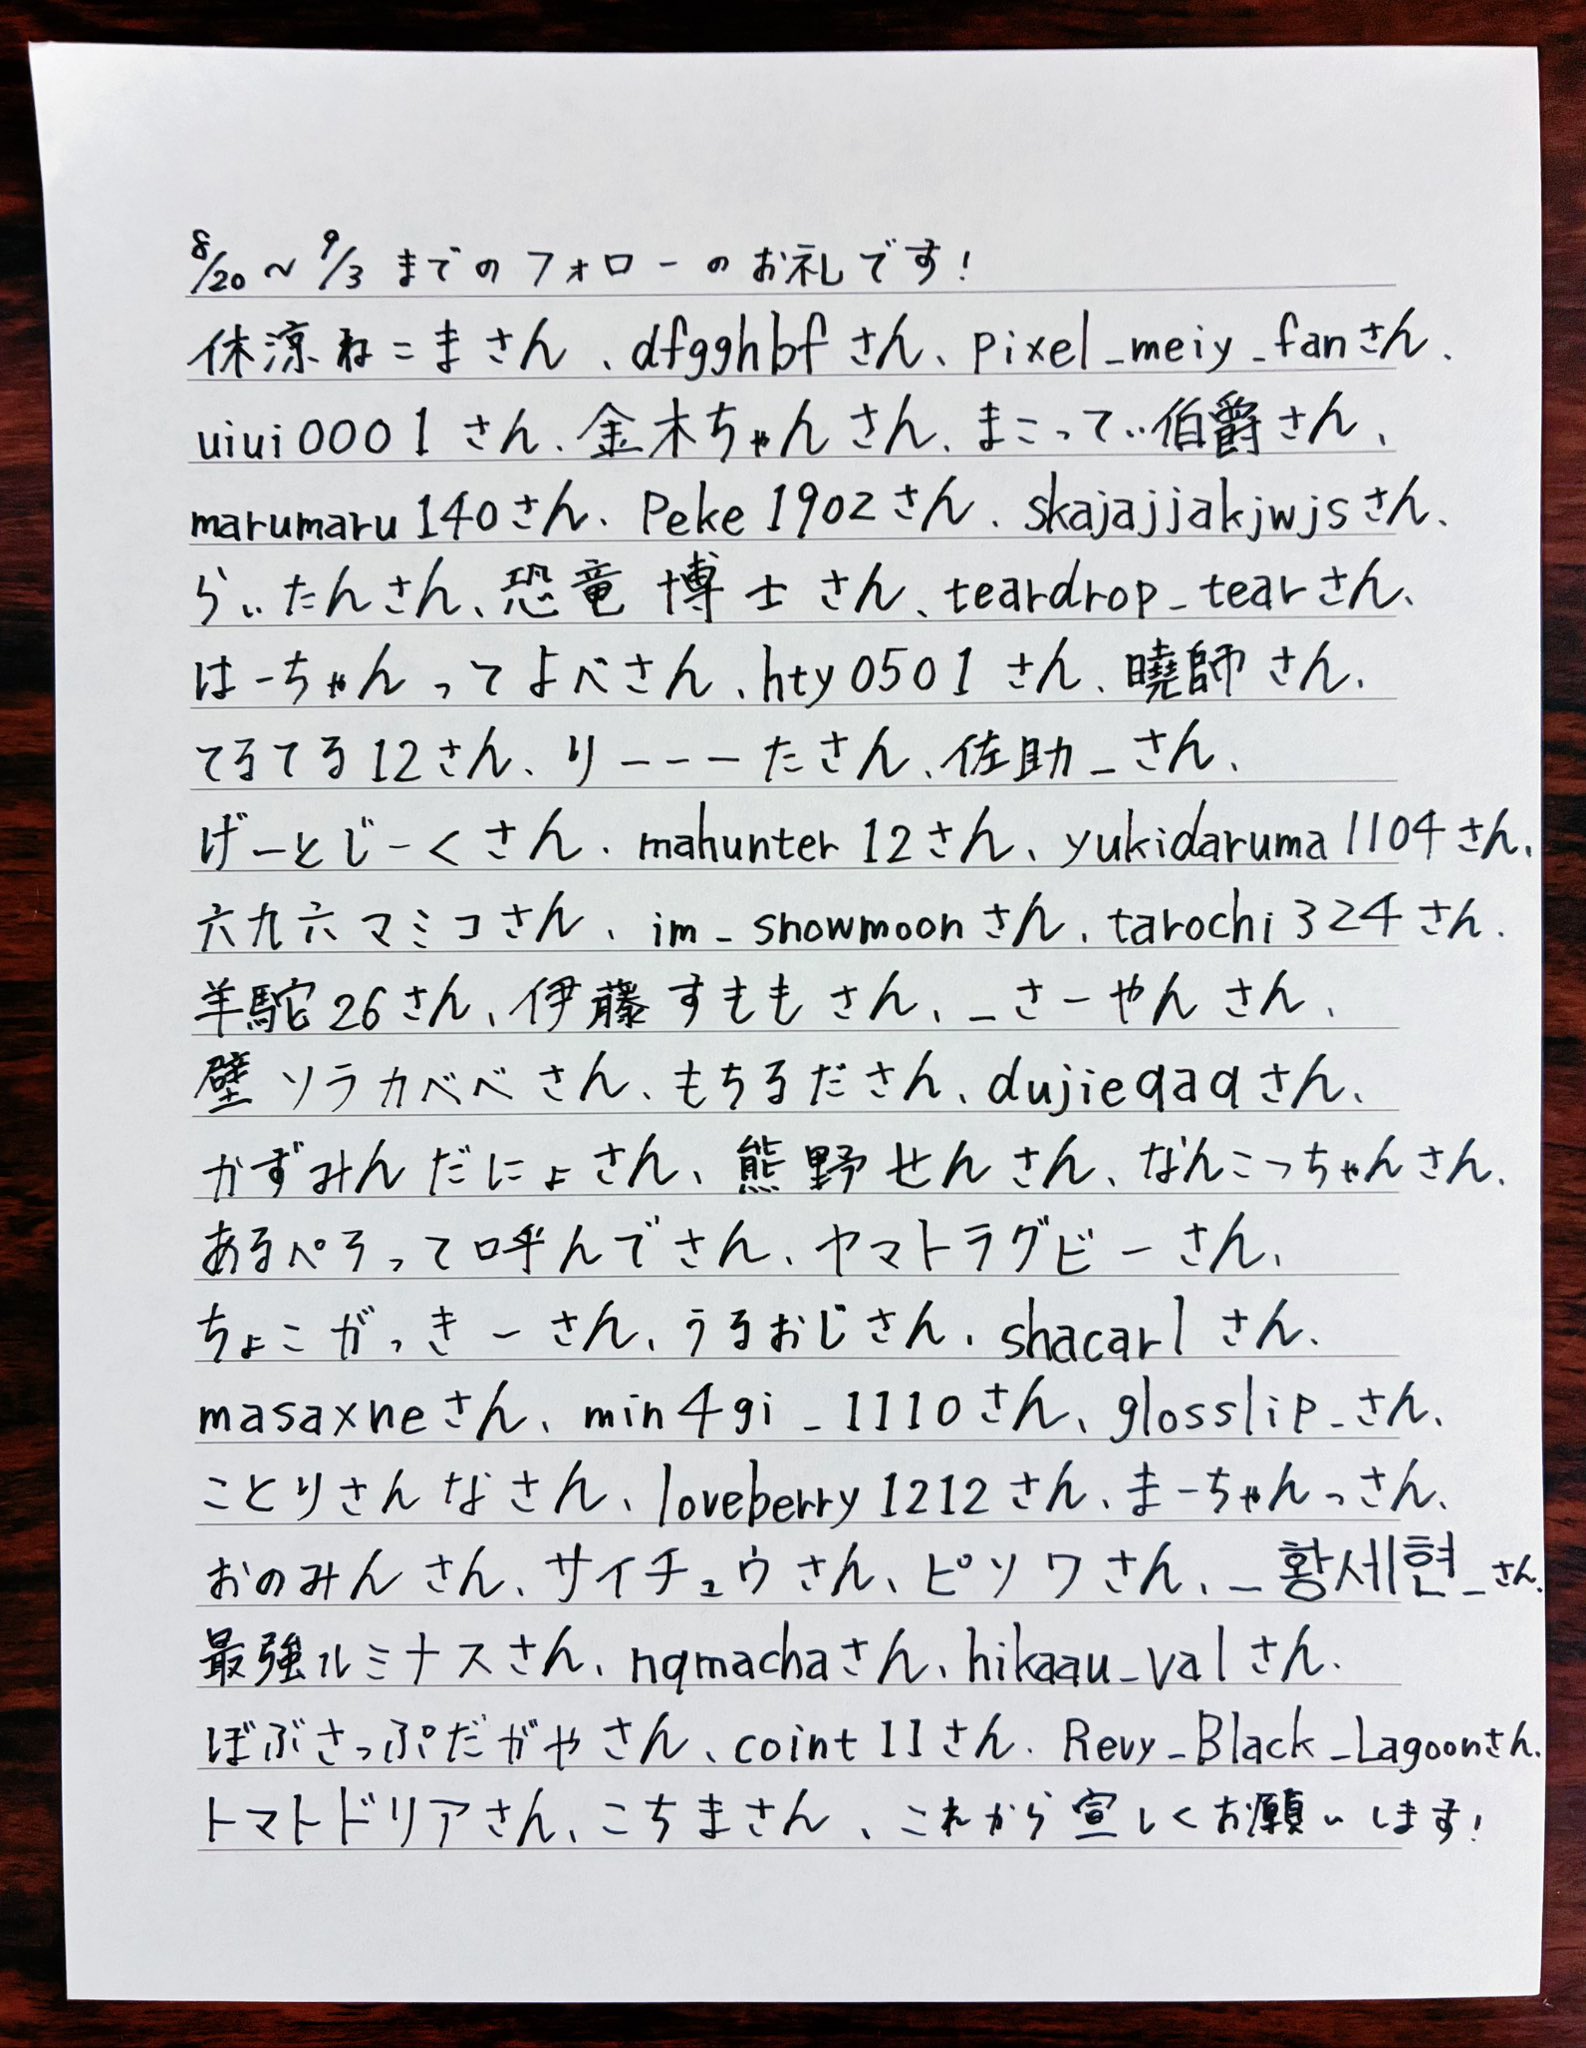 8/20～9/3までのフォローのお礼です！
休涼ねこまさん、dfgghbfさん、pixel_meiy_fanさん、
uiui0001さん、金木ちゃんさん、まこってぃ伯爵さん、
marumaru140さん、Peke1902さん、skajajjakjwjsさん、
らぃたんさん、恐竜博士さん、teardrop_tearさん、
はーちゃんってよべさん、hty0501さん、曉師さん、
てるてる12さん、りーーーたさん、佐助_さん、
げーとじーくさん、mahunter12さん、yukidaruma1104さん、
六九六マミコさん、im_snowmoonさん、tarochi324さん、
羊駝26さん、伊藤すももさん、_さーやんさん、
壁ソラカベベさん、もちるださん、dujieqaqさん、
かずみんだにょさん、熊野せんさん、なんこっちゃんさん、
あるぺろって呼んでさん、ヤマトラグビーさん、
ちょこがっきーさん、うるおじさん、shacarlさん、
masaxneさん、min4gi_1110さん、glosslip_さん、
ことりさんなさん、loveberry1212さん、まーちゃんっさん、
おのみんさん、サイチュウさん、ピソワさん、_황세현_さん、
最強ルミナスさん、nqmachaさん、hikaau_valさん、
ぼぶさっぷだがやさん、coint11さん、Revy_Black_Lagoonさん、
トマトドリアさん、こちまさん、これから宜しくお願いします！